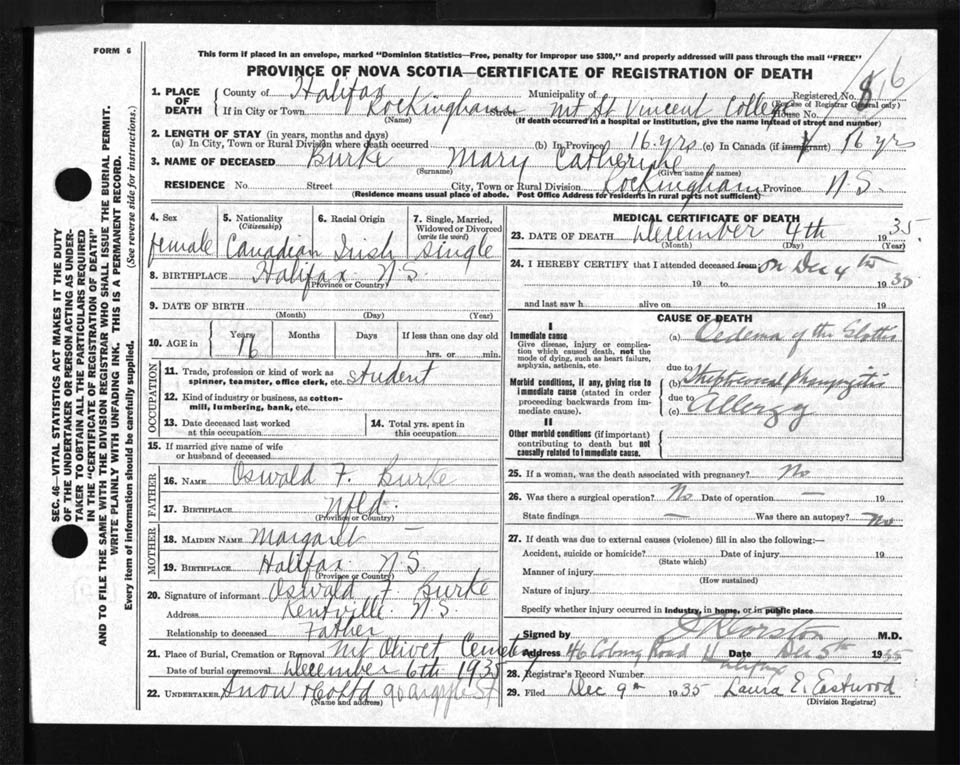 FORM 6
This form if placed in an envelope, marked "Dominion Statistics—Free, penalty for improper use $300," and properly addressed will pass through the mail "FREE"
PROVINCE OF NOVA SCOTIA—CERTIFICATE OF REGISTRATION OF DEATH
SEC. 46—VITAL STATISTICS ACT MAKES IT THE DUTY
OF THE UNDERTAKER OR PERSON ACTING AS UNDER-
TAKER TO OBTAIN ALL THE PARTICULARS REQUIRED
IN THE "CERTIFICATE OF REGISTRATION OF DEATH"
AND TO FILE THE SAME WITH THE DIVISION REGISTRAR WHO SHALL ISSUE THE BURIAL PERMIT.
WRITE PLAINLY WITH UNFADING INK. THIS IS A PERMANENT RECORD.
Every item of information should be carefully supplied. (See reverse side for instructions.)
1. PLACE OF DEATH County of Halifax Municipality of Registered No. 816
(For use of Registrar General only)
If in City or Town Rockingham Street Mt St Vincent College House No.
(Name) (If death occurred in a hospital or institution, give the name instead of street and number)
2. LENGTH OF STAY (in years, months and days)
(a) In City, Town or Rural Division where death occurred (b) In Province 16 yrs (c) In Canada (if immigrant) 16 yrs
3. NAME OF DECEASED Burke Mary Catherine
(Surname) (Given name or names)
RESIDENCE No. Street City, Town or Rural Division Rockingham Province N.S.
(Residence means usual place of abode. Post Office Address for residents in rural parts not sufficient)
4. Sex female
5. Nationality (Citizenship) Canadian
6. Racial Origin Irish
7. Single, Married, Widowed or Divorced (write the word) single
8. BIRTHPLACE Halifax N.S.
(Province or Country)
9. DATE OF BIRTH
(Month) (Day) (Year)
10. AGE in Years 16 Months Days If less than one day
hrs. or min.
OCCUPATION
11. Trade, profession or kind of work as
spinner, teamster, office clerk, etc. student
12. Kind of industry or business, as cotton-
mill, lumbering, bank, etc.
13. Date deceased last worked
at this occupation
14. Total yrs. spent in
this occupation
15. If married give name of wife
or husband of deceased
FATHER
16. NAME Oswald F. Burke
17. BIRTHPLACE Nfld.
(Province or Country)
MOTHER
18. MAIDEN NAME Margaret —
19. BIRTHPLACE Halifax N.S.
(Province or Country)
20. Signature of informant Oswald F. Burke
Address Kentville N.S.
Relationship to deceased Father
21. Place of Burial, Cremation or Removal Mt Olivet Cemetery
Date of burial or removal December 6th 1935
22. UNDERTAKER Snow & Co Ltd 90 Argyle St
(Name and address)
MEDICAL CERTIFICATE OF DEATH
23. DATE OF DEATH December 4th 1935.
(Month) (Day) (Year)
24. I HEREBY CERTIFY that I attended deceased from: on Dec 4th
19 to 1935
and last saw h alive on 19
CAUSE OF DEATH
I
Immediate cause
Give disease, injury or complica-
tion which caused death, not the
mode of dying, such as heart failure,
asphyxia, asthenia, etc.
(a) Oedema of the Glottis
due to
Morbid conditions, if any, giving rise to
immediate cause (stated in order
proceeding backwards from im-
mediate cause).
(b) Streptococcal Pharyngitis
due to
(c) Allergy
II
Other morbid conditions (if important)
contributing to death but not
causally related to immediate cause.
25. If a woman, was the death associated with pregnancy? No
26. Was there a surgical operation? No Date of operation — 19
State findings — Was there an autopsy? No
27. If death was due to external causes (violence) fill in also the following:—
Accident, suicide or homicide? Date of injury 19
(State which)
Manner of injury
(How sustained)
Nature of injury
Specify whether injury occurred in industry, in home, or in public place
Signed by Corston M.D.
Address 46 Coburg Road Halifax Date Dec 5th 1935
28. Registrar's Record Number
29. Filed Dec 9th 1935 Laura E. Eastwood
(Division Registrar)